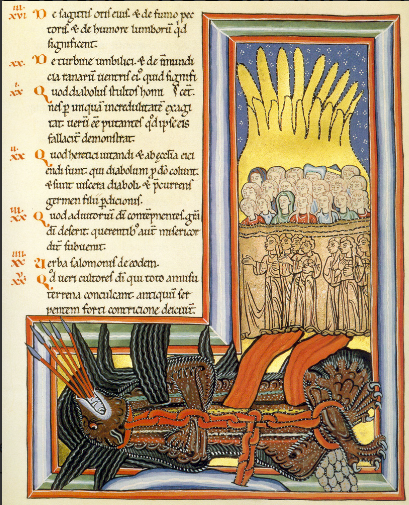 iii.
xvi. De sagittis oris eius. & de fumo pec
toris. & de humore lumborũ qđ
significent.
xx. De turbine umbilici. & de inmundi
uentris ei' quid signifi
i.
xx Quod diabolus stultos homi cent.
nes p incredulitatẽ exagi
tat. uerũ ẽe putantes qđ ipse eis
fallacit demonstrat.
ii.
xx Quod heretici uitandi & ab ecclia eici
endi sunt. qui diabolum p dõ colunt.
& sunt uiscera diaboli. & pcurrens
germen filii pdicionis.
iii.
xx Quod adiutoriũ dĩ contempnentes.
dĩ deserit. querentib' aut misericor
dit subuenit.
iiii.
xx Verba salomonis de eodem.
v.
xx Quod ueri cultores dĩ qui toto annisu
terrena conculcant. antiquũ ser
pentem forti contricione deiciunt.